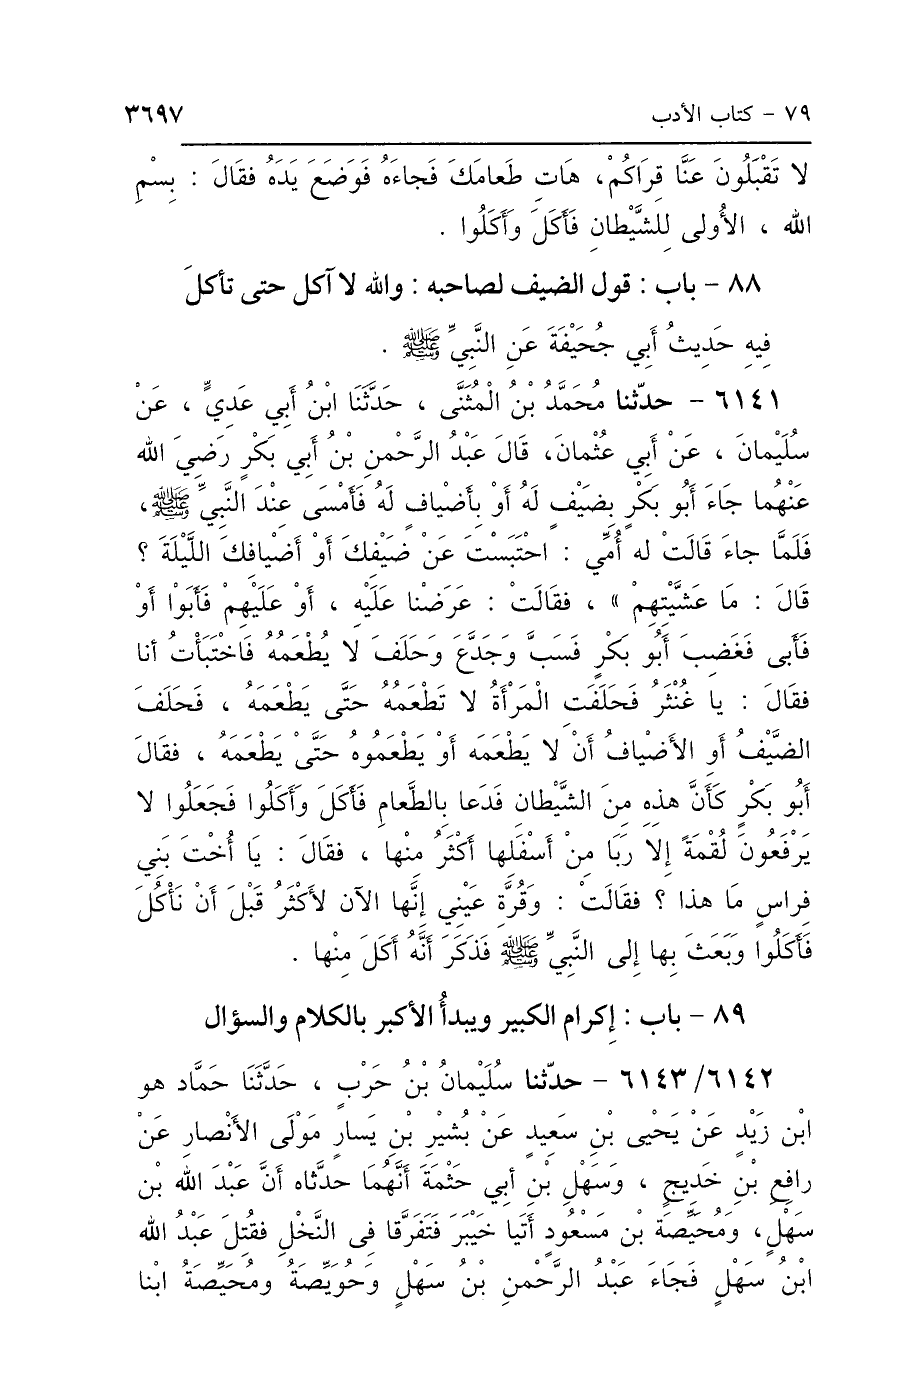 ٧٩ - كتاب الأدب ٣٦٩٧
لا تَقْبَلُونَ عَنَّا قِرَاكُمْ، هَاتِ طَعامَكَ فَجاءَهُ فَوَضَعَ يَدَهُ فقالَ : بِسْمِ
الله ، الأُولى لِلشَّيْطانِ فَأَكَلَ وَأَكَلُوا .
٨٨ - باب : قول الضيف لصاحبه : والله لا آكل حتى تأكلَ
فِيهِ حَدِيثُ أَبي جُحَيْفَةَ عَنِ النَّبِيِّ ﷺ .
٦١٤١ - حدّثنا مُحَمَّدُ بْنُ الْمُثَنَّى ، حَدَّثَنَا ابْنُ أَبي عَدِيٍّ ، عَنْ
سُلَيْمانَ ، عَنْ أَبي عُثْمانَ، قَالَ عَبْدُ الرَّحْمنِ بْنُ أَبي بَكْرٍ رَضِيَ الله
عَنْهُما جَاءَ أَبُو بَكْرٍ بِضَيْفٍ لَهُ أَوْ بأَضْيافٍ لَهُ فَأَمْسَى عِنْدَ النَّبِيِّ ﷺ،
فَلَمَّا جاءَ قَالَتْ له أُمِّي : احْتَبَسْتَ عَنْ ضَيْفِكَ أَوْ أَضْيافِكَ اللَّيْلَةَ ؟
قَالَ : مَا عَشَّيْتِهِمْ » ، فقالَتْ : عَرَضْنا عَلَيْهِ ، أَوْ عَلَيْهِمْ فَأَبَوْا أَوْ
فَأَبى فَغَضِبَ أَبُو بَكْرٍ فَسَبَّ وَجَدَّعَ وَحَلَفَ لا يُطْعَمُهُ فَاخْتَبَأْتُ أنا
فقَالَ : يا غُنْثَرُ فَحَلَفَتِ الْمَرْأَةُ لا تَطْعَمُهُ حَتَّى يَطْعَمَهُ ، فَحَلَفَ
الضَّيْفُ أَوِ الأَضْيافُ أَنْ لا يَطْعَمَه أَوْ يَطْعَمُوهُ حَتَّى يَطْعَمَهُ ، فقالَ
أَبُو بَكْرٍ كَأَنَّ هذِهِ مِنَ الشَّيْطانِ فَدَعا بالطَّعامِ فَأَكَلَ وَأَكَلُوا فَجَعَلُوا لا
يَرْفَعُونَ لُقْمَةً إلا رَبَا مِنْ أَسْفَلِها أَكْثَرُ مِنْها ، فقالَ : يا أُخْتَ بَنِي
فِراسٍ مَا هذا ؟ فقالَتْ : وَقُرَّةِ عَيْنِي إنَّها الآن لأكْثَرُ قَبْلَ أَنْ نَأْكُلَ
فَأَكَلُوا وَبَعَثَ بِها إلى النَّبِيِّ ﷺ فَذَكَرَ أَنَّهُ أَكَلَ مِنْها .
٨٩ - باب : إكرام الكبير ويبدأُ الأكبر بالكلام والسؤال
٦١٤٢ /٦١٤٣ - حدّثنا سُلَيْمانُ بْنُ حَرْبٍ ، حَدَّثَنَا حَمَّاد هو
ابْن زَيْدٍ عَنْ يَحْيى بنِ سَعِيدٍ عَنْ بُشَيْرِ بْنِ يَسارٍ مَوْلَى الأَنْصارِ عَنْ
رافِعِ بْنِ خَدِيجٍ ، وَسَهْلِ بْنِ أبي حَثْمَةَ أَنَّهُمَا حدَّثاه أَنَّ عَبْدَ الله بْن
سَهْلٍ، وَمُحَيِّصَةَ بْن مَسْعُودٍ أَتَيا خَيْبَرَ فَتَفَرَّقا فى النَّخْلِ فقُتِلَ عَبْدُ الله
ابْنُ سَهْلٍ فَجَاءَ عَبْدُ الرَّحْمنِ بْنُ سَهْلٍ وَحُوَيِّصَةُ ومُحَيِّصَةُ ابْنا